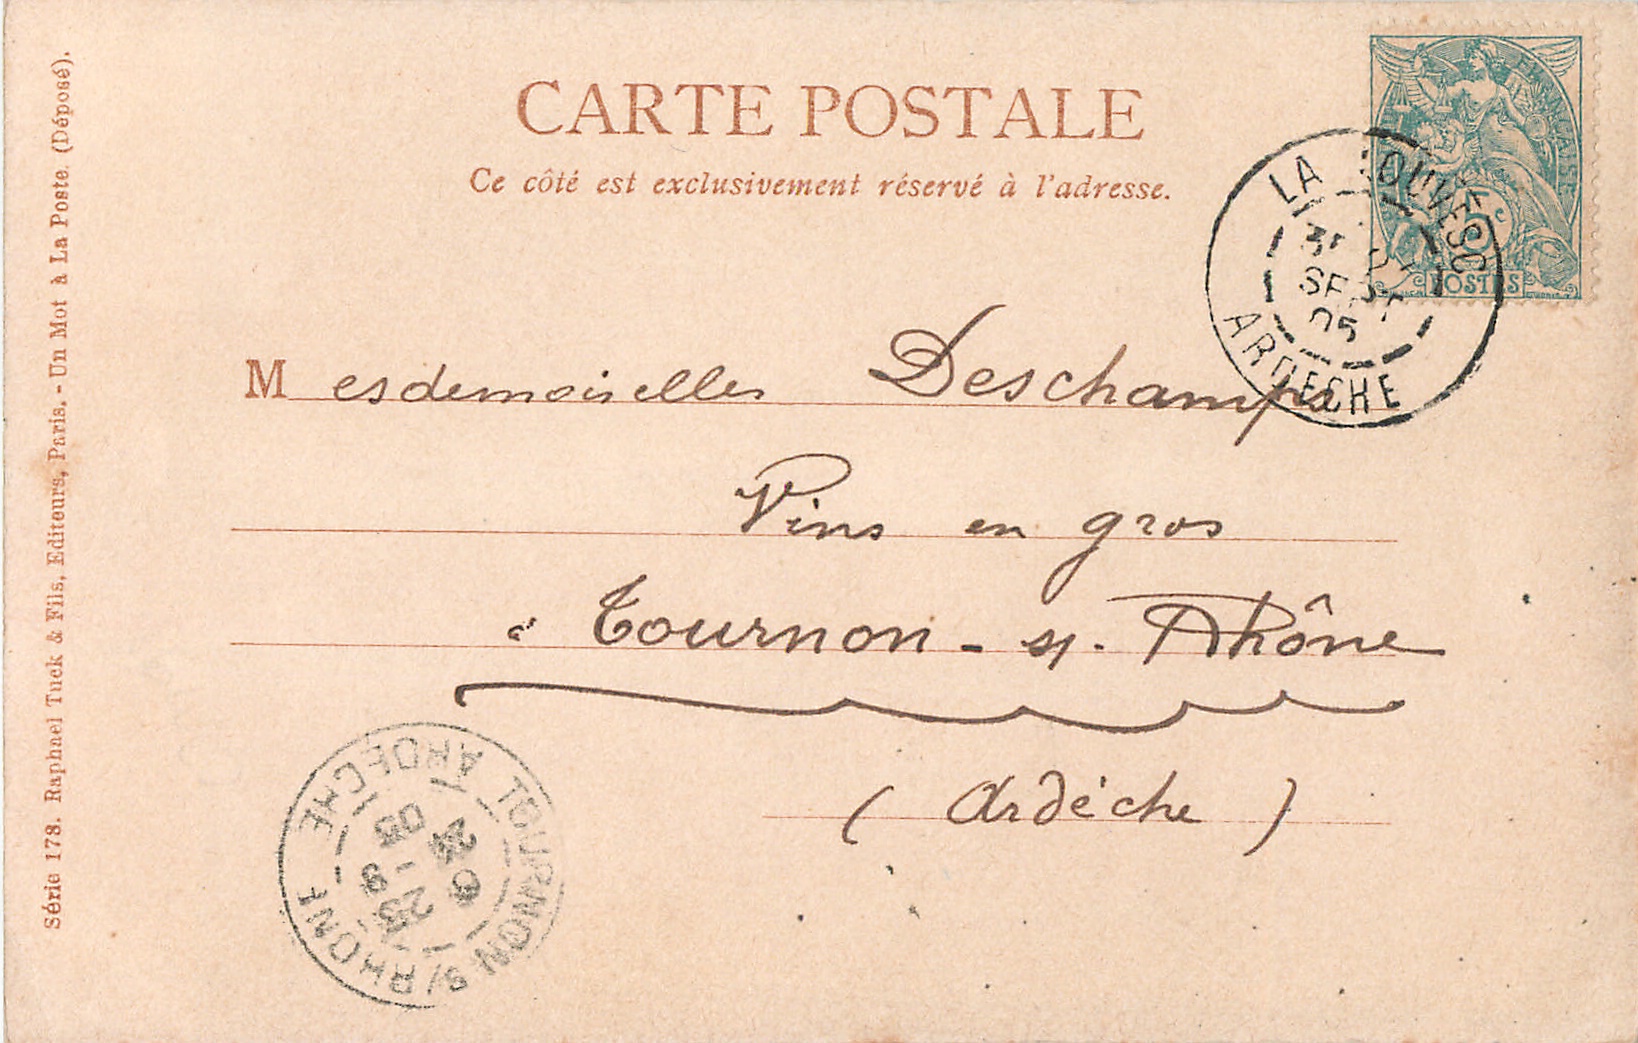 CARTE POSTALE
Ce côté est exclusivement réservé à l'adresse.
FRANÇAISE
5c
POSTES
LA LOUVESC
SEPT
05
ARDECHE
Mesdemoiselles Deschamps
Vins en gros
à Tournon-s/-Rhône
(Ardèche)
TOURNON S/RHONE
23 - 9
05
ARDECHE
Série 178. Raphael Tuck & Fils, Editeurs, Paris. - Un Mot à La Poste. (Déposé).